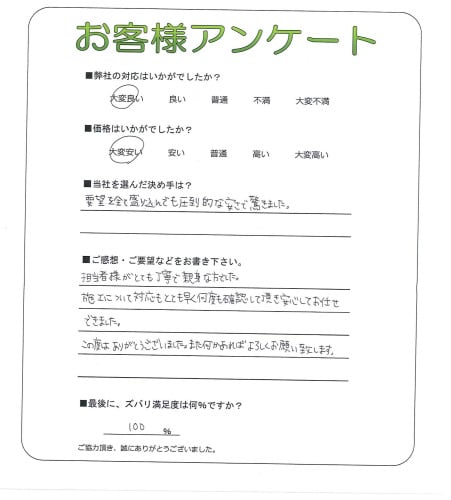 お客様アンケート
■弊社の対応はいかがでしたか？
大変良い 良い 普通 不満 大変不満
■価格はいかがでしたか？
大変安い 安い 普通 高い 大変高い
■当社を選んだ決め手は？
要望を全て盛り込んでも圧倒的な安さで驚きました。
■ご感想・ご要望などをお書き下さい。
担当者様がとても丁寧で親身な方でした。
施工について対応もとても早く何度も確認して頂き安心してお任せ
できました。
この度はありがとうございました。また何かあればよろしくお願い致します。
■最後に、ズバリ満足度は何％ですか？
100 ％
ご協力頂き、誠にありがとうございました。